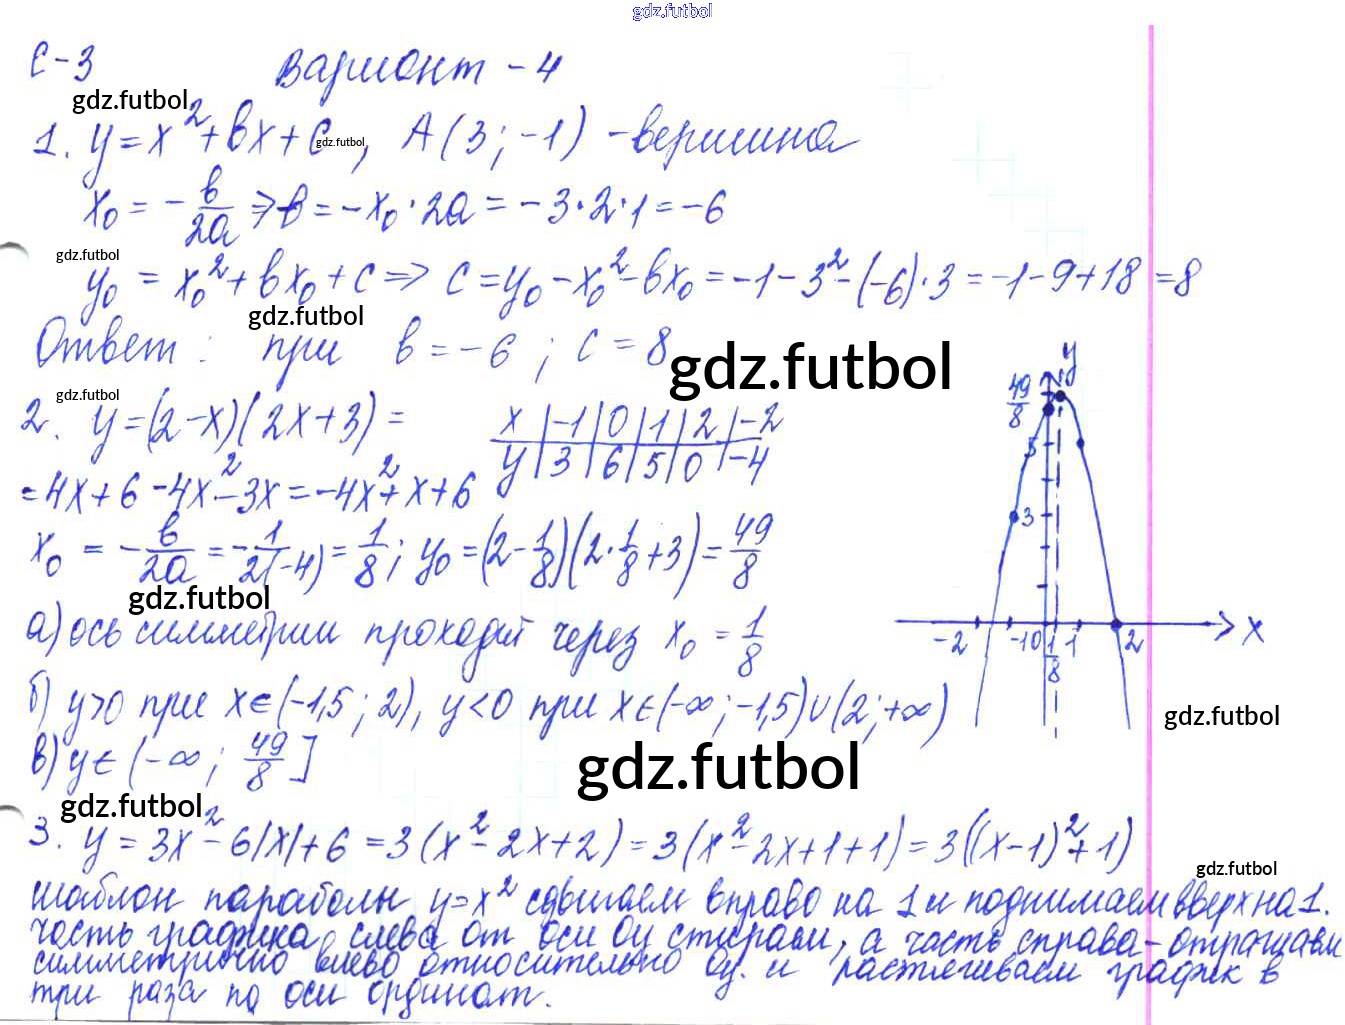 gdz.futbol
С-3 Вариант - 4
gdz.futbol
1. y = x² + bx + c, A(3; -1) - вершина
gdz.futbol
x₀ = -b/2a => b = -x₀·2a = -3·2·1 = -6
gdz.futbol
y₀ = x₀² + bx₀ + c => c = y₀ - x₀² - bx₀ = -1 - 3² - (-6)·3 = -1 - 9 + 18 = 8
gdz.futbol
Ответ: при b = -6; c = 8
gdz.futbol
gdz.futbol
2. y = (2-x)(2x+3) =
x | -1 | 0 | 1 | 2 | -2
y | 3 | 6 | 5 | 0 | -4
= 4x + 6 - 4x² - 3x = -4x² + x + 6
x₀ = -b/2a = -1/2(-4) = 1/8; y₀ = (2 - 1/8)(2·1/8 + 3) = 49/8
gdz.futbol
а) ось симметрии проходит через x₀ = 1/8
б) y>0 при x∈(-1,5; 2), y<0 при x∈(-∞; -1,5)∪(2; +∞)
в) y∈(-∞; 49/8]
y
49/8
5
3
-2 -1 0 1/8 1 2 x
gdz.futbol
gdz.futbol
gdz.futbol
3. y = 3x² - 6|x| + 6 = 3(x² - 2x + 2) = 3(x² - 2x + 1 + 1) = 3((x-1)² + 1)
gdz.futbol
шаблон параболы y = x² сдвигаем вправо на 1 и поднимаем вверх на 1.
часть графика слева от оси Oy стираем, а часть справа - отражаем
симметрично влево относительно Oy. и растягиваем график в
три раза по оси ординат.